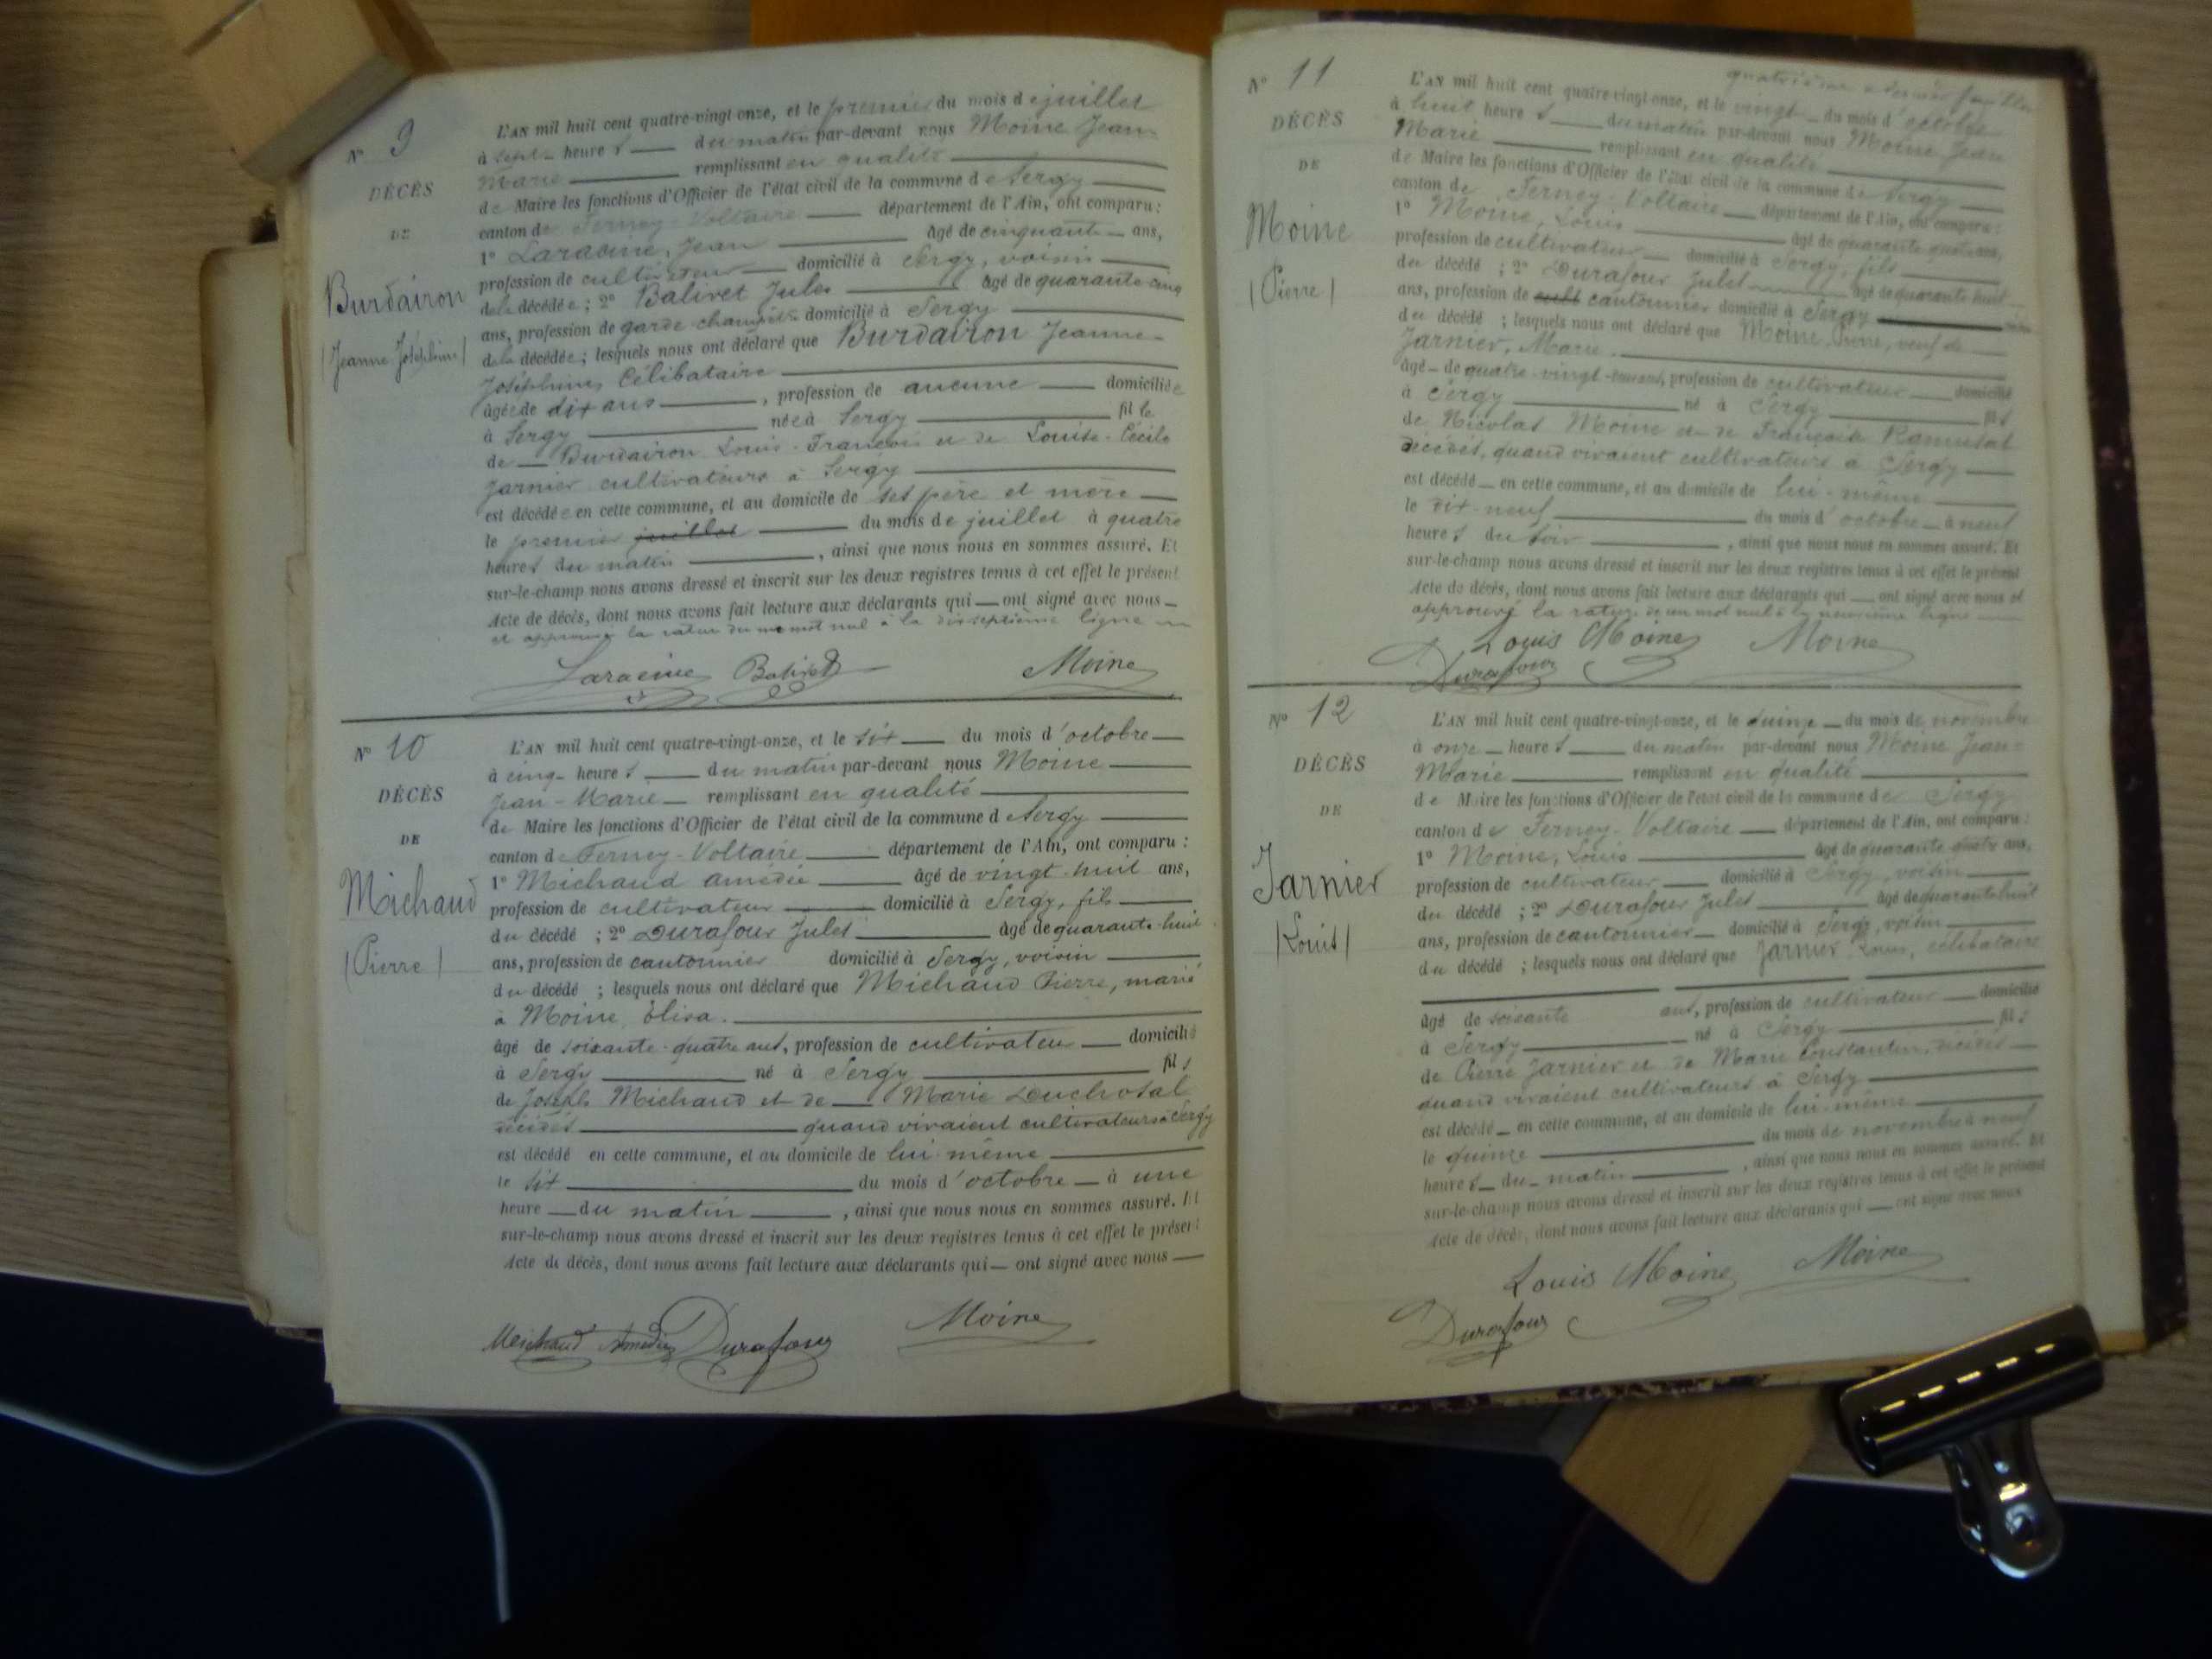 N° 9
DÉCÈS
DE
Burdairon
(Jeanne Joséphine)
L'AN mil huit cent quatre-vingt-onze, et le premier du mois de juillet
à sept heures du matin par-devant nous Moine Jean-
Marie remplissant en qualité
de Maire les fonctions d'Officier de l'état civil de la commune de Sergy
canton de Ferney-Voltaire département de l'Ain, ont comparu :
1° Laracine, Jean âgé de cinquante ans,
profession de cultivateur domicilié à Sergy, voisin
de la décédée ; 2° Balivet Jules âgé de quarante-cinq
ans, profession de garde-champêtre domicilié à Sergy
de la décédée ; lesquels nous ont déclaré que Burdairon Jeanne-
Joséphine, Célibataire
âgée de dix ans, profession de aucune domiciliée
à Sergy née à Sergy fille
de Burdairon Louis-François et de Louise-Cécile
Jarnier cultivateurs à Sergy
est décédée en cette commune, et au domicile de ses père et mère
le premier juillet du mois de juillet à quatre
heures du matin, ainsi que nous nous en sommes assuré. Et
sur-le-champ nous avons dressé et inscrit sur les deux registres tenus à cet effet le présent
Acte de décès, dont nous avons fait lecture aux déclarants qui ont signé avec nous
et approuvé la rature d'un mot nul à la dixseptième ligne
Laracine Balivet Moine
N° 10
DÉCÈS
DE
Michaud
(Pierre)
L'AN mil huit cent quatre-vingt-onze, et le six du mois d'octobre
à cinq heures du matin par-devant nous Moine
Jean-Marie remplissant en qualité
de Maire les fonctions d'Officier de l'état civil de la commune d Sergy
canton de Ferney-Voltaire département de l'Ain, ont comparu :
1° Michaud Amédée âgé de vingt-huit ans,
profession de cultivateur domicilié à Sergy, fils
du décédé ; 2° Durafour Jules âgé de quarante-huit
ans, profession de cantonnier domicilié à Sergy, voisin
du décédé ; lesquels nous ont déclaré que Michaud Pierre, marié
à Moine, Elisa.
âgé de soixante-quatre ans, profession de cultivateur domicilié
à Sergy né à Sergy fils
de Joseph Michaud et de Marie Duchosal
décédés quand vivaient cultivateurs à Sergy
est décédé en cette commune, et au domicile de lui-même
le six du mois d'octobre à une
heure du matin, ainsi que nous nous en sommes assuré. Et
sur-le-champ nous avons dressé et inscrit sur les deux registres tenus à cet effet le présent
Acte de décès, dont nous avons fait lecture aux déclarants qui ont signé avec nous
Michaud Amédée Durafour Moine
quatrième et dernier feuillet
N° 11
DÉCÈS
DE
Moine
(Pierre)
L'AN mil huit cent quatre-vingt-onze, et le vingt du mois d'octobre
à huit heures du matin par-devant nous Moine Jean
Marie remplissant en qualité
de Maire les fonctions d'Officier de l'état civil de la commune de Sergy
canton de Ferney-Voltaire département de l'Ain, ont comparu :
1° Moine, Louis âgé de quarante-quatre ans,
profession de cultivateur domicilié à Sergy, fils
du décédé ; 2° Durafour Jules âgé de quarante-huit
ans, profession de cult cantonnier domicilié à Sergy
du décédé ; lesquels nous ont déclaré que Moine, Pierre, veuf de
Jarnier, Marie.
âgé de quatre-vingt ans, profession de cultivateur domicilié
à Sergy né à Sergy fils
de Nicolas Moine et de Françoise Ramusat
décédés, quand vivaient cultivateurs à Sergy
est décédé en cette commune, et au domicile de lui-même
le dix-neuf du mois d'octobre à neuf
heures du soir, ainsi que nous nous en sommes assuré. Et
sur-le-champ nous avons dressé et inscrit sur les deux registres tenus à cet effet le présent
Acte de décès, dont nous avons fait lecture aux déclarants qui ont signé avec nous et
approuvé la rature de un mot nul à la neuvième ligne
Louis Moine Moine
Durafour
N° 12
DÉCÈS
DE
Jarnier
(Louis)
L'AN mil huit cent quatre-vingt-onze, et le quinze du mois de novembre
à onze heures du matin par-devant nous Moine Jean-
Marie remplissant en qualité
de Maire les fonctions d'Officier de l'état civil de la commune de Sergy
canton de Ferney-Voltaire département de l'Ain, ont comparu :
1° Moine, Louis âgé de quarante-quatre ans,
profession de cultivateur domicilié à Sergy, voisin
du décédé ; 2° Durafour Jules âgé de quarante-huit
ans, profession de cantonnier domicilié à Sergy, voisin
du décédé ; lesquels nous ont déclaré que Jarnier Louis, célibataire
âgé de soixante ans, profession de cultivateur domicilié
à Sergy né à Sergy fils
de Pierre Jarnier et de Marie Constantin, décédés
quand vivaient cultivateurs à Sergy
est décédé en cette commune, et au domicile de lui-même
le quinze du mois de novembre à neuf
heures du matin, ainsi que nous nous en sommes assuré. Et
sur-le-champ nous avons dressé et inscrit sur les deux registres tenus à cet effet le présent
Acte de décès, dont nous avons fait lecture aux déclarants qui ont signé avec nous
Louis Moine Moine
Durafour